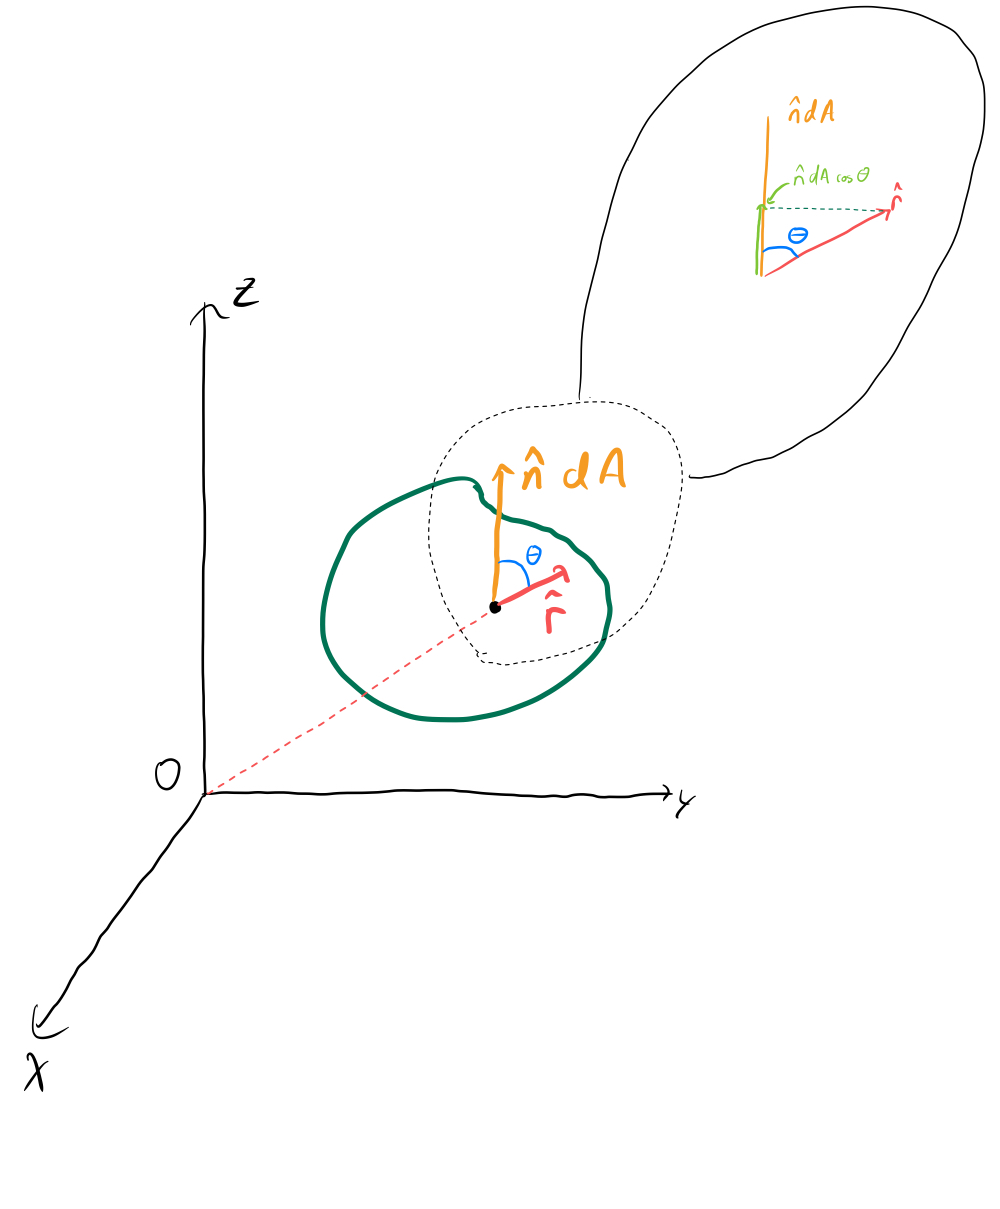 n̂ dA
n̂ dA cos θ
r̂
θ
z
n̂ dA
θ
r̂
O
y
x